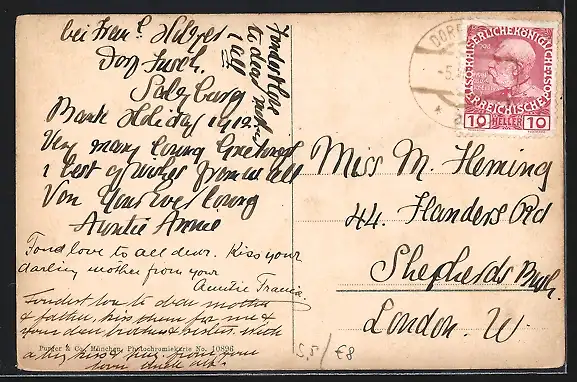 bei Frau
Dorf Fusch.
Salzburg
Bank Holiday 1912.
Very many loving Greetings
& best of wishes from us all
Von Your ever loving
Auntie Annie
Fondest love
to dear
all
Fond love to all dear. Kiss your
darling mother from your
Auntie Francie.
Fondest love to dear mother
& father, kiss them for me &
your dear brothers & sisters. With
a big kiss & hug from your
Purger & Co., München, Photochromiekarte No. 10896
DORF
5.
KAISERLICHE KÖNIGLICHE
ÖSTERREICHISCHE
10 HELLER 10
Miss M Fleming
44. Flanders Rd
Shepherds Bush.
London. W.
S,5/€8